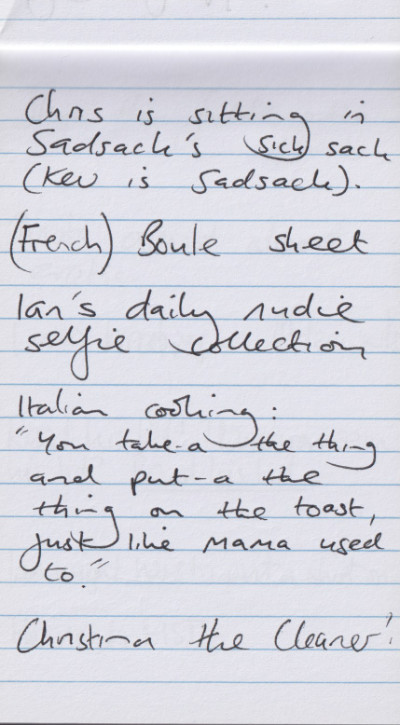 Chris is sitting in
Sadsack's sick sack
(Kev is Sadsack).
(French) Boule sheet
Ian's daily nudie
selfie collection
Italian cooking:
"You take-a the thing
and put-a the
thing on the toast,
just like Mama used
to."
Christina the Cleaner!